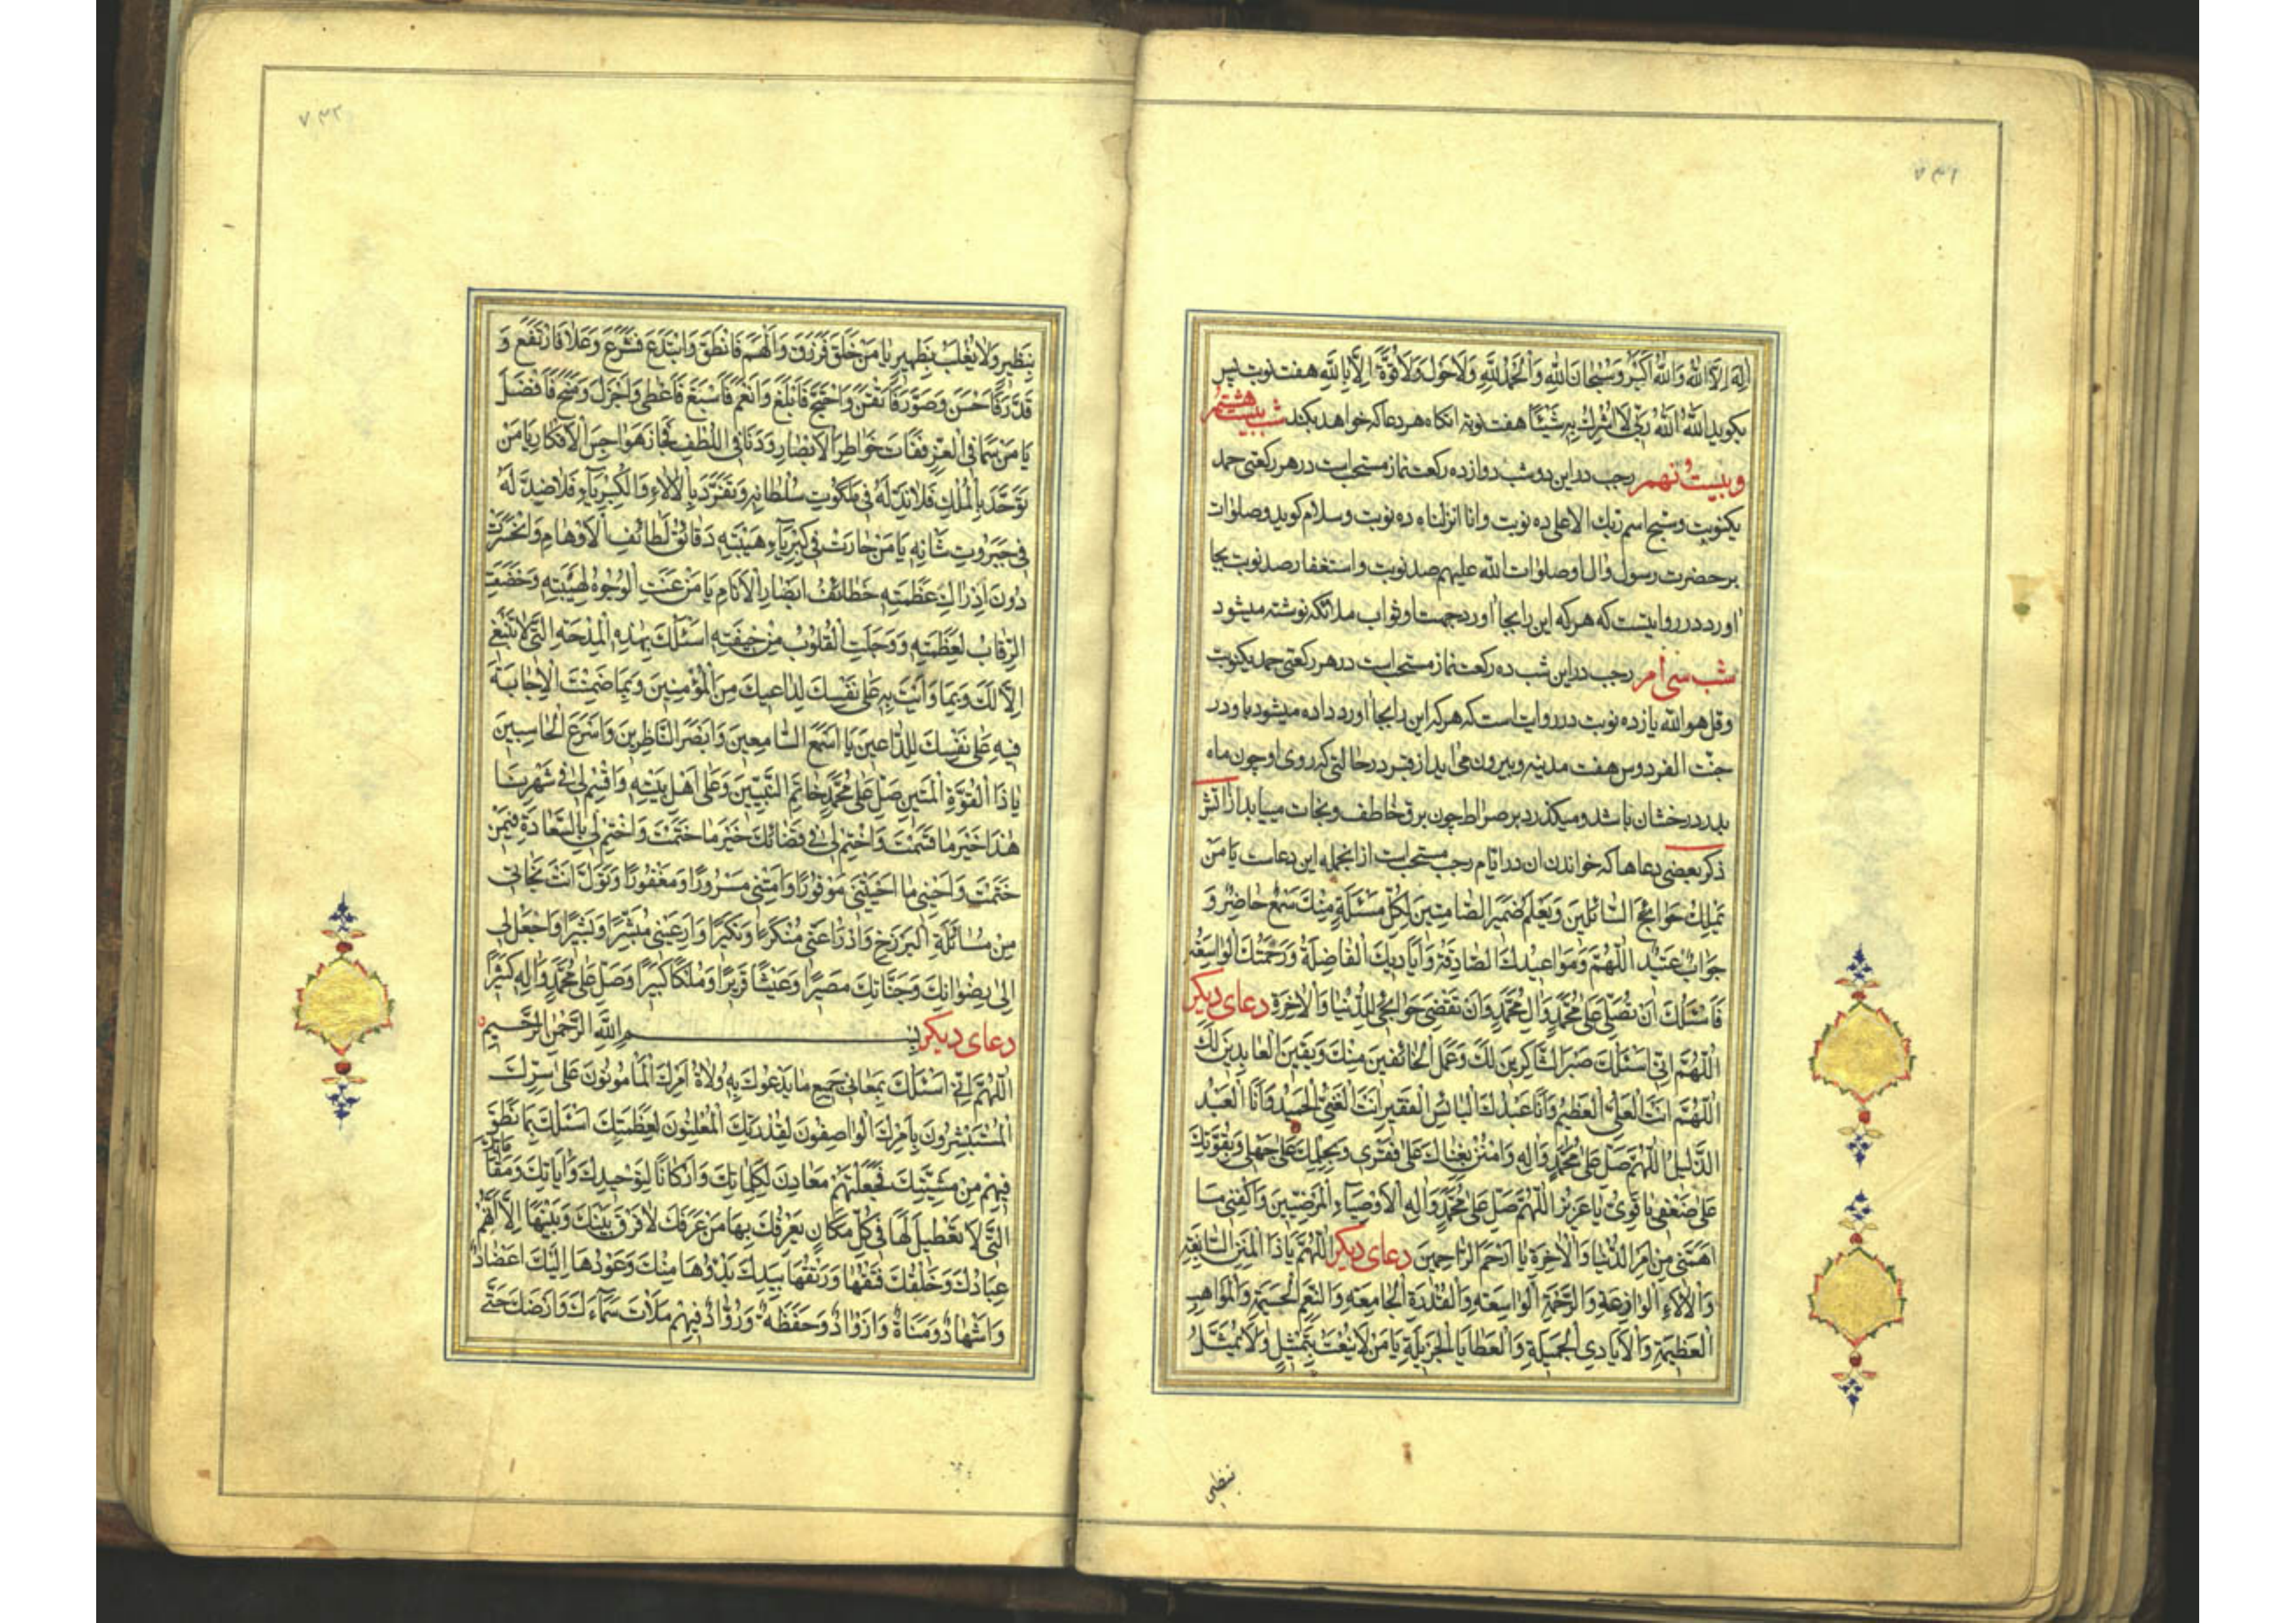 ٧٣١
اِلهَ اِلَّا اللّٰهُ وَاللّٰهُ اَكْبَرُ وَسُبْحَانَ اللّٰهِ وَالْحَمْدُ لِلّٰهِ وَلَاحَوْلَ وَلَا قُوَّةَ اِلَّا بِاللّٰهِ هفت نوبت پس
بكويد اَللّٰهُ اَللّٰهُ رَبّى لَا اُشْرِكُ بِهِ شَيْئًا هفت نوبة انكاه هر دعا كه خواهد بكند شب بيست هشتم
و بيست و نهم رجب در اين دو شب دوازده ركعت نماز مستحب است در هر ركعتى حمد
يكنوبت وسبح اسم ربك الاعلى ده نوبت وانا انزلناه ده نوبت وسلام كويد وصلوات
بر حضرت رسول وال او صلوات الله عليهم صد نوبت واستغفار صد نوبت بجا
اورد در روايتست كه هر كه اين را بجا اورد جهت او ثواب ملائكه نوشته ميشود
شب سى ام رجب در اين شب ده ركعت نماز مستحب است در هر ركعتى حمد يكنوبت
وقل هو الله يازده نوبت در روايت است كه هر كه اين را بجا اورد داده ميشود باو در
جنّت الفردوس هفت مدينه وبيرون مى ايد از قبر در حالتى كه روى او چون ماه
بدر درخشان باشد و ميكذرد بر صراط چون برق خاطف ونجات مييابد از اتش
ذكر بعضى دعاها كه خواندن ان در ايّام رجب مستحب است از انجمله اين دعاست يَا مَنْ
يَمْلِكُ حَوَائِجَ السَّائِلينَ وَيَعْلَمُ ضَميرَ الصَّامِتينَ لِكُلِّ مَسْئَلَةٍ مِنْكَ سَمْعٌ حَاضِرٌ وَ
جَوَابٌ عَتيدٌ اَللّٰهُمَّ وَمَوَاعيدُكَ الصَّادِقَةُ وَاَيَاديكَ الْفَاضِلَةُ وَرَحْمَتُكَ الْوَاسِعَةُ
فَاَسْئَلُكَ اَنْ تُصَلِّىَ عَلٰى مُحَمَّدٍ وَاٰلِ مُحَمَّدٍ وَاَنْ تَقْضِىَ حَوَائِجى لِلدُّنْيَا وَالْاٰخِرَةِ دعاى ديكر
اَللّٰهُمَّ اِنّى اَسْئَلُكَ صَبْرَ الشَّاكِرينَ لَكَ وَعَمَلَ الْخَائِفينَ مِنْكَ وَيَقينَ الْعَابِدينَ لَكَ
اَللّٰهُمَّ اَنْتَ الْعَلِىُّ الْعَظيمُ وَاَنَا عَبْدُكَ الْبَائِسُ الْفَقيرُ اَنْتَ الْغَنِىُّ الْحَميدُ وَاَنَا الْعَبْدُ
الذَّليلُ اَللّٰهُمَّ صَلِّ عَلٰى مُحَمَّدٍ وَاٰلِهِ وَامْنُنْ بِغِنَاكَ عَلٰى فَقْرى وَبِحِلْمِكَ عَلٰى جَهْلى وَبِقُوَّتِكَ
عَلٰى ضَعْفى يَا قَوِىُّ يَا عَزيزُ اَللّٰهُمَّ صَلِّ عَلٰى مُحَمَّدٍ وَاٰلِهِ الْاَوْصِيَاءِ الْمَرْضِيّينَ وَاكْفِنى مَا
اَهَمَّنى مِنْ اَمْرِ الدُّنْيَا وَالْاٰخِرَةِ يَا اَرْحَمَ الرَّاحِمينَ دعاى ديكر اَللّٰهُمَّ يَا ذَا الْمِنَنِ السَّابِغَةِ
وَالْاٰلَاءِ الْوَازِعَةِ وَالرَّحْمَةِ الْوَاسِعَةِ وَالْقُدْرَةِ الْجَامِعَةِ وَالنِّعَمِ الْجَسيمَةِ وَالْمَوَاهِبِ
الْعَظيمَةِ وَالْاَيَادِى الْجَميلَةِ وَالْعَطَايَا الْجَزيلَةِ يَا مَنْ لَا يُنْعَتُ بِتَمْثيلٍ وَلَا يُمَثَّلُ
بنظير
٧٣٢
بِنَظيرٍ وَلَا يُغْلَبُ بِظَهيرٍ يَا مَنْ خَلَقَ فَرَزَقَ وَاَلْهَمَ فَانْطَقَ وَابْتَدَعَ فَشَرَعَ وَعَلَا فَارْتَفَعَ وَ
قَدَّرَ فَاَحْسَنَ وَصَوَّرَ فَاَتْقَنَ وَاحْتَجَّ فَاَبْلَغَ وَاَنْعَمَ فَاَسْبَغَ فَاَعْطٰى وَاَجْزَلَ وَمَنَحَ فَاَفْضَلَ
يَا مَنْ سَمَا فِى الْعِزِّ فَفَاتَ خَوَاطِرَ الْاَبْصَارِ وَدَنَا فِى اللُّطْفِ فَجَازَ هَوَاجِسَ الْاَفْكَارِ يَا مَنْ
تَوَحَّدَ بِالْمُلْكِ فَلَا نِدَّ لَهُ فى مَلَكُوتِ سُلْطَانِهِ وَتَفَرَّدَ بِالْاٰلَاءِ وَالْكِبْرِيَاءِ فَلَا ضِدَّ لَهُ
فى جَبَرُوتِ شَانِهِ يَا مَنْ حَارَتْ فى كِبْرِيَاءِ هَيْبَتِهِ دَقَائِقُ لَطَائِفِ الْاَوْهَامِ وَانْحَسَرَتْ
دُونَ اِدْرَاكِ عَظَمَتِهِ خَطَائِفُ اَبْصَارِ الْاَنَامِ يَا مَنْ عَنَتِ الْوُجُوهُ لِهَيْبَتِهِ وَخَضَعَتِ
الرِّقَابُ لِعَظَمَتِهِ وَوَجِلَتِ الْقُلُوبُ مِنْ خيفَتِهِ اَسْئَلُكَ بِهٰذِهِ الْمِدْحَةِ الَّتى لَا تَنْبَغى
اِلَّا لَكَ وَبِمَا وَاَيْتَ بِهِ عَلٰى نَفْسِكَ لِدَاعيكَ مِنَ الْمُؤْمِنينَ وَبِمَا ضَمِنْتَ الْاِجَابَةَ
فيهِ عَلٰى نَفْسِكَ لِلدَّاعينَ يَا اَسْمَعَ السَّامِعينَ وَاَبْصَرَ النَّاظِرينَ وَاَسْرَعَ الْحَاسِبينَ
يَا ذَا الْقُوَّةِ الْمَتينِ صَلِّ عَلٰى مُحَمَّدٍ خَاتَمِ النَّبِيّينَ وَعَلٰى اَهْلِ بَيْتِهِ وَاقْسِمْ لى فى شَهْرِنَا
هٰذَا خَيْرَ مَا قَسَمْتَ وَاخْتِمْ لى فى قَضَائِكَ خَيْرَ مَا خَتَمْتَ وَاخْتِمْ لى بِالسَّعَادَةِ فيمَنْ
خَتَمْتَ وَاَحْيِنى مَا اَحْيَيْتَنى مَوْفُورًا وَاَمِتْنى مَسْرُورًا وَمَغْفُورًا وَتَوَلَّ اَنْتَ نَجَاتى
مِنْ مُسَائَلَةِ الْبَرْزَخِ وَادْرَاْ عَنّى مُنْكَرًا وَنَكيرًا وَاَرِ عَيْنى مُبَشِّرًا وَبَشيرًا وَاجْعَلْ لى
اِلٰى رِضْوَانِكَ وَجَنَّاتِكَ مَصيرًا وَعَيْشًا قَريرًا وَمُلْكًا كَبيرًا وَصَلِّ عَلٰى مُحَمَّدٍ وَاٰلِهِ كَثيرًا
دعاى ديكر بِسْمِ اللّٰهِ الرَّحْمٰنِ الرَّحيمِ
اَللّٰهُمَّ اِنّى اَسْئَلُكَ بِمَعَانى جَميعِ مَا يَدْعُوكَ بِهِ وُلَاةُ اَمْرِكَ الْمَأْمُونُونَ عَلٰى سِرِّكَ
الْمُسْتَبْشِرُونَ بِاَمْرِكَ الْوَاصِفُونَ لِقُدْرَتِكَ الْمُعْلِنُونَ لِعَظَمَتِكَ اَسْئَلُكَ بِمَا نَطَقَ
فيهِمْ مِنْ مَشِيَّتِكَ فَجَعَلْتَهُمْ مَعَادِنَ لِكَلِمَاتِكَ وَاَرْكَانًا لِتَوْحيدِكَ وَاٰيَاتِكَ وَمَقَامَاتِكَ
الَّتى لَا تَعْطيلَ لَهَا فى كُلِّ مَكَانٍ يَعْرِفُكَ بِهَا مَنْ عَرَفَكَ لَا فَرْقَ بَيْنَكَ وَبَيْنَهَا اِلَّا اَنَّهُمْ
عِبَادُكَ وَخَلْقُكَ فَتْقُهَا وَرَتْقُهَا بِيَدِكَ بَدْؤُهَا مِنْكَ وَعَوْدُهَا اِلَيْكَ اَعْضَادٌ
وَاَشْهَادٌ وَمَنَاةٌ وَاَزْوَادٌ وَحَفَظَةٌ وَرُوَّادٌ فَبِهِمْ مَلَاْتَ سَمَاءَكَ وَاَرْضَكَ حَتّٰى